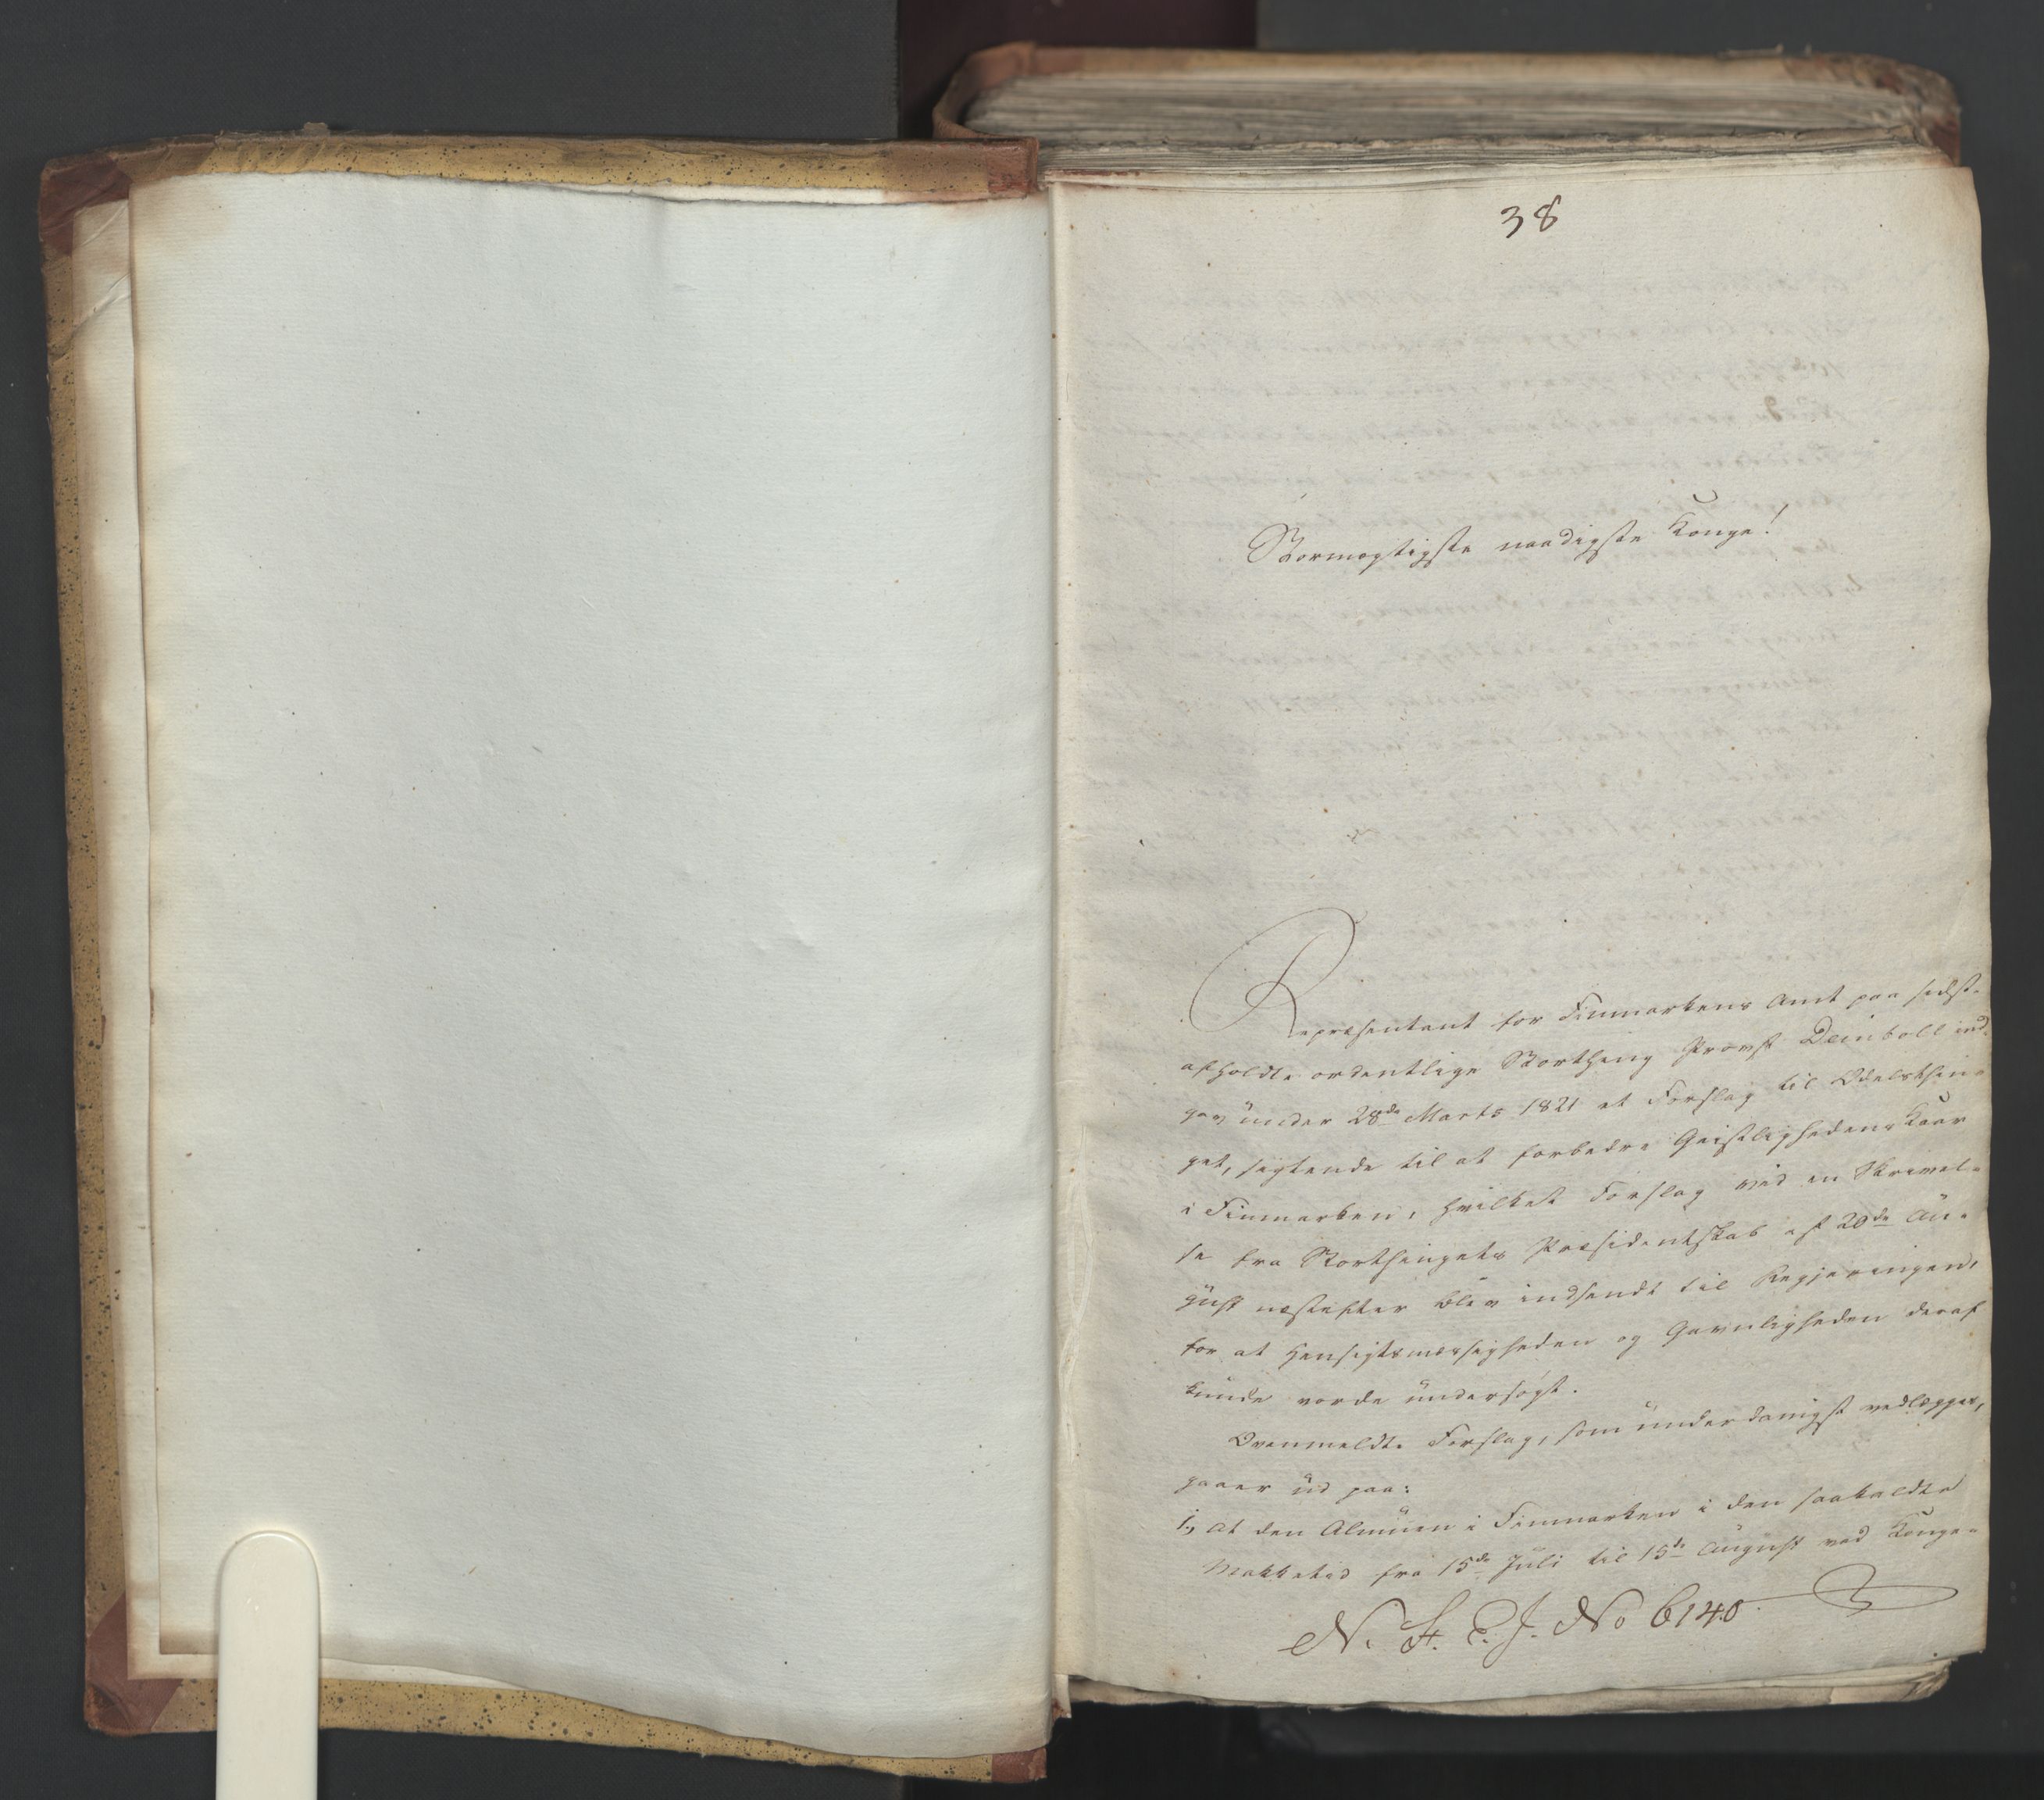 38
Stormægtigste naadigste Konge!
Repræsentant for Finmarkens Amt paa sidst-
afholdte ordentlige Storthing Provst Deinboll ind-
gav under 28de Marts 1821 et Forslag til Odelsthin-
get, sigtende til at forbedre Geistlighedens Kaar
i Finmarken, hvilket Forslag ved en Skrivel-
se fra Storthingets Præsidentskab af 20de Au-
gust næstefter blev indsendt til Regjeringen,
for at Hensigtsmæssigheden og Gavnligheden deraf
kunde vorde undersøgt.
Ovenmeldte Forslag, som underdanigst vedlægges,
gaaer ud paa:
1., at den Almuen i Finmarken i den saakaldte
Makketid fra 15de Juli til 15de August ved Konge-
N. St. E. J. No 6140